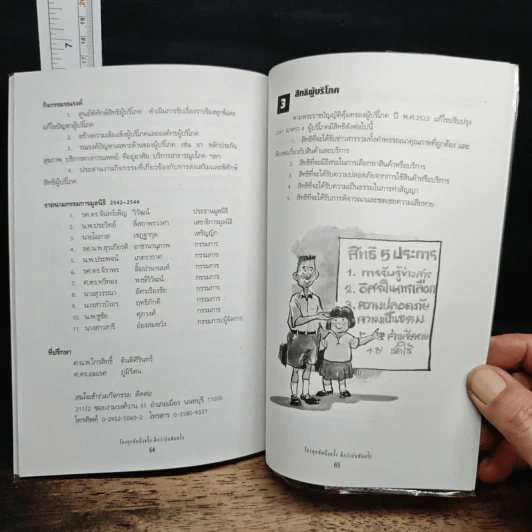 กิจกรรมรณรงค์
1. ศูนย์พิทักษ์สิทธิผู้บริโภค ดำเนินการรับเรื่องราวร้องทุกข์และ
แก้ไขปัญหาผู้บริโภค
2. สร้างความเข้มแข็งผู้บริโภคและองค์กรผู้บริโภค
3. รณรงค์ปัญหาเฉพาะด้านของผู้บริโภค เช่น ยา หลักประกัน
สุขภาพ บริการทางการแพทย์ ที่อยู่อาศัย บริการสาธารณูปโภค ฯลฯ
4. ประสานงานกิจกรรมที่เกี่ยวข้องกับการส่งเสริมและพิทักษ์
สิทธิผู้บริโภค
รายนามกรรมการมูลนิธิ 2542-2544
1. รศ.ดร.จันทร์เพ็ญ วิวัฒน์ ประธานมูลนิธิ
2. น.พ.ประวิทย์ ลี่สถาพรวงศา เลขาธิการมูลนิธิ
3. นายโอภาส เชฏฐากุล เหรัญญิก
4. รศ.น.พ.สุรเกียรติ อาชานานุภาพ กรรมการ
5. น.พ.ประพจน์ เภตรากาศ กรรมการ
6. รศ.ดร.จิราพร ลิ้มปานานนท์ กรรมการ
7. ศ.ดร.ทวีทอง หงษ์วิวัฒน์ กรรมการ
8. นางสุวรรณา อัศวเรืองชัย กรรมการ
9. นางสาวบังอร ฤทธิภักดี กรรมการ
10. น.พ.ชูชัย ศุภวงศ์ กรรมการ
11. นางสาวสารี อ๋องสมหวัง กรรมการ/ผู้จัดการ
ที่ปรึกษา
ศ.น.พ.ไกรสิทธิ์ ตันติศิรินทร์
ศ.ดร.อมเรศ ภูมิรัตน
สนใจเข้าร่วมกิจกรรม ติดต่อ
211/2 ซอยงามวงศ์วาน 31 อำเภอเมือง นนทบุรี 11000
โทรศัพท์ 0-2952-5060-2 โทรสาร 0-2580-9337
ร้องทุกข์หนึ่งครั้ง ดีกว่าบ่นพันครั้ง
64
3 สิทธิผู้บริโภค
ตามพระราชบัญญัติคุ้มครองผู้บริโภค ปี พ.ศ.2522 แก้ไขปรับปรุง
2541 มาตรา 4 ผู้บริโภคมีสิทธิดังต่อไปนี้
1 สิทธิที่จะได้รับข่าวสารรวมทั้งคำพรรณนาคุณภาพที่ถูกต้อง และ
เพียงพอเกี่ยวกับสินค้าและบริการ
2 สิทธิที่จะมีอิสระในการเลือกหาสินค้าหรือบริการ
3 สิทธิที่จะได้รับความปลอดภัยจากการใช้สินค้าหรือบริการ
4 สิทธิที่จะได้รับความเป็นธรรมในการทำสัญญา
5 สิทธิที่จะได้รับการพิจารณาและชดเชยความเสียหาย
สิทธิ 5 ประการ
1. การรับรู้ข่าวสาร
2. อิสระในการเลือก
3. ความปลอดภัย
ความเป็นธรรม
ร้องทุกข์หนึ่งครั้ง ดีกว่าบ่นพันครั้ง
65
7